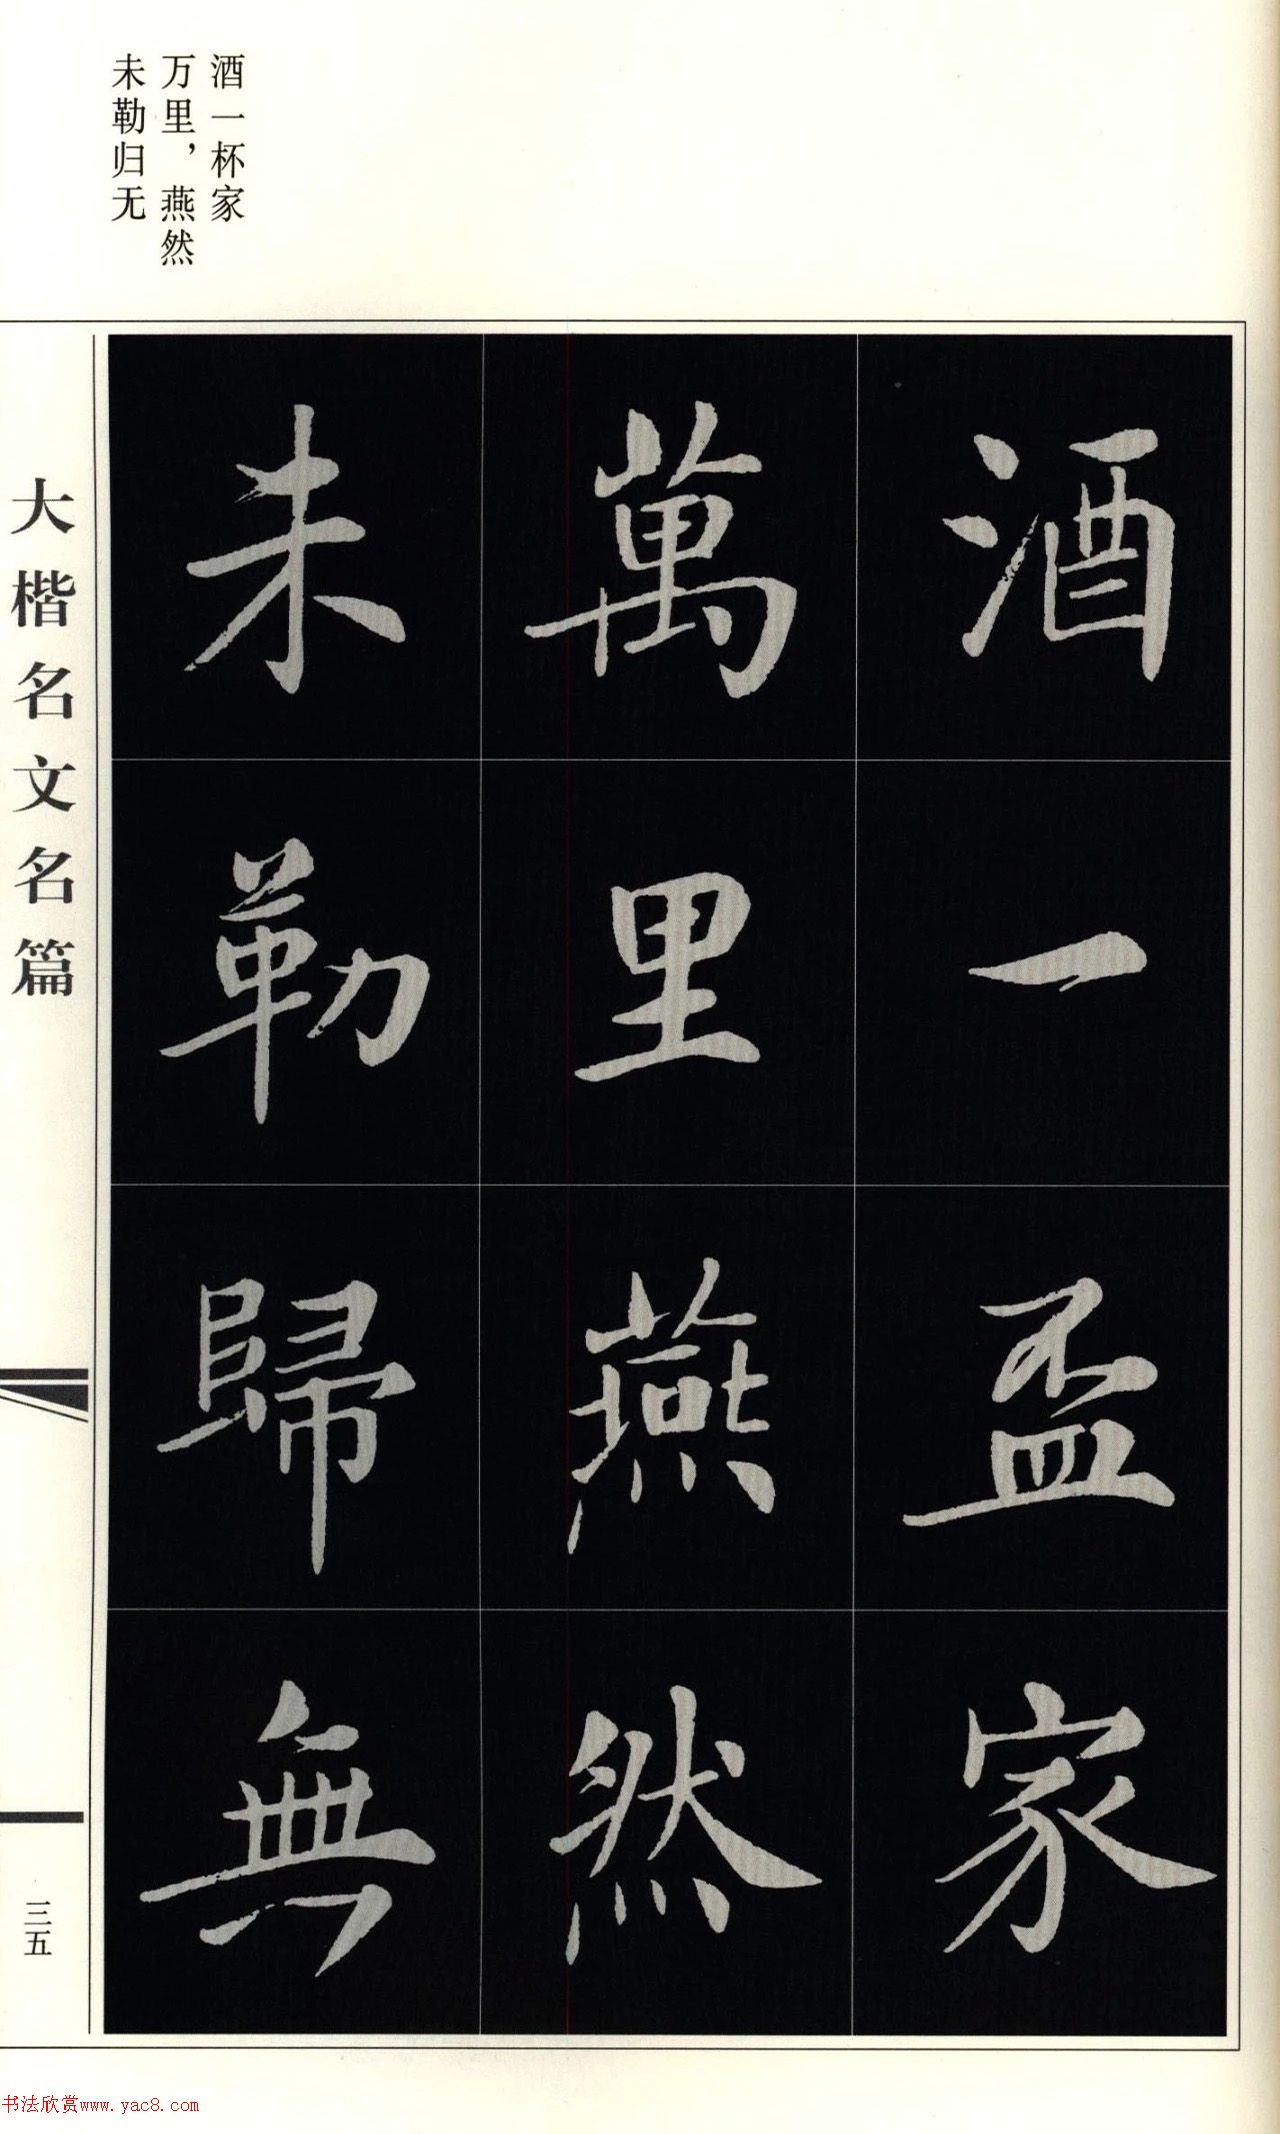 酒一杯家
万里，燕然
未勒归无
酒一盃家
萬里燕然
未勒歸無
大楷名文名篇
三五
书法欣赏www.yac8.com